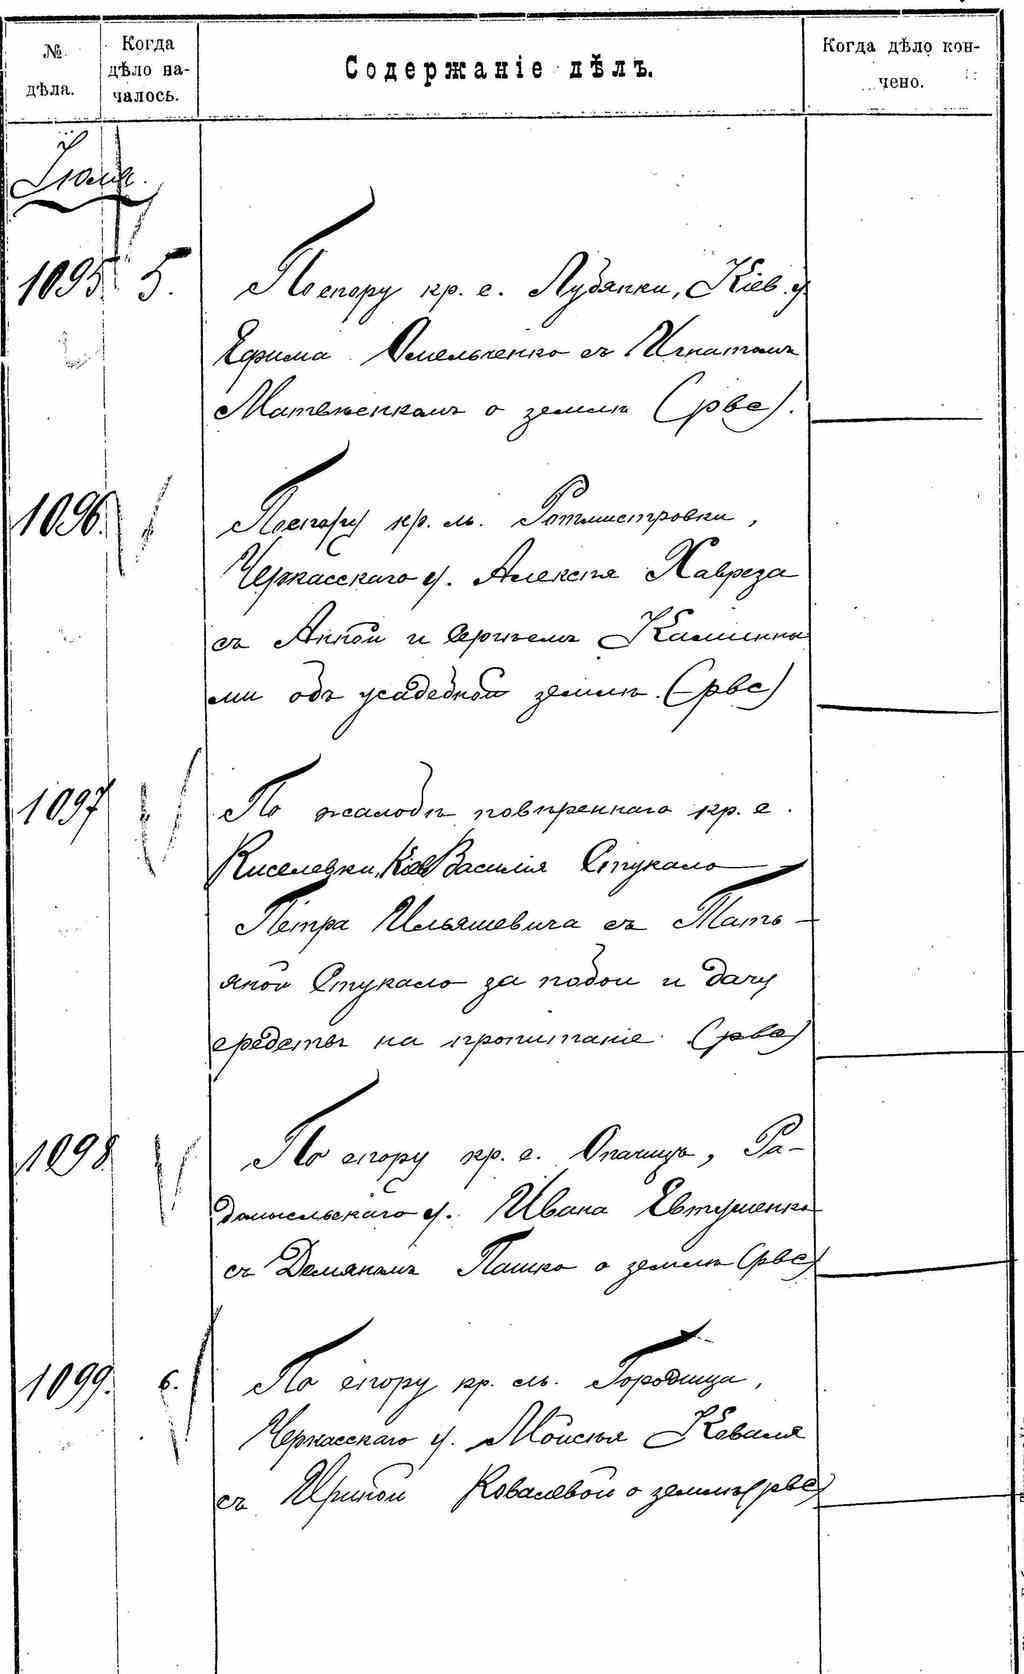 № дѣла.
Когда дѣло на-
чалось.
Содержаніе дѣлъ.
Когда дѣло кон-
чено.
Іюля.
1095. 5.
По спору кр. с. Лубянки, Кіев. у.
Ефима Омельченко съ Игнатомъ
Матвѣенкомъ о землѣ (рвс).
1096.
По спору кр. м. Ротмистровки,
Черкасскаго у. Алексѣя Хавреза
съ Анной и Сергѣемъ Калинны
ми объ усадебной землѣ. (рвс)
1097
По жалобѣ повѣреннаго кр. с.
Киселевки, Кіев Василія Стукало
Петра Ильяшевича съ Тать-
яной Стукало за побои и дачу
средствъ на пропитаніе. (рвс)
1098
По спору кр. с. Опачицъ, Ра-
домысльскаго у. Ивана Евтушенко
съ Демяномъ Пашко о землѣ (рвс)
1099. 6.
По спору кр. м. Городища,
Черкасскаго у. Мойсѣя Коваля
съ Ириной Ковалевой о землѣ (рвс)